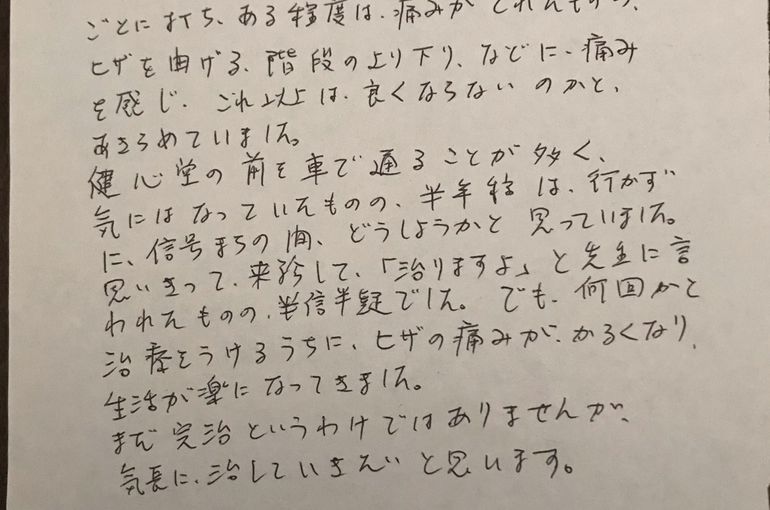 ごとに打ち、ある程度は、痛みがとれたものの、
ヒザを曲げる、階段の上り下り、などに、痛み
を感じ、これ以上は、良くならないのかと、
あきらめていました。
健心堂の前を車で通ることが多く、
気にはなっていたものの、半年程は、行かず
に、信号まちの間、どうしようかと思っていました。
思いきって、来診して、「治りますよ」と先生に言
われたものの、半信半疑でした。でも、何回かと
治療をうけるうちに、ヒザの痛みが、かるくなり、
生活が楽になってきました。
まだ完治というわけではありませんが、
気長に、治していきたいと思います。